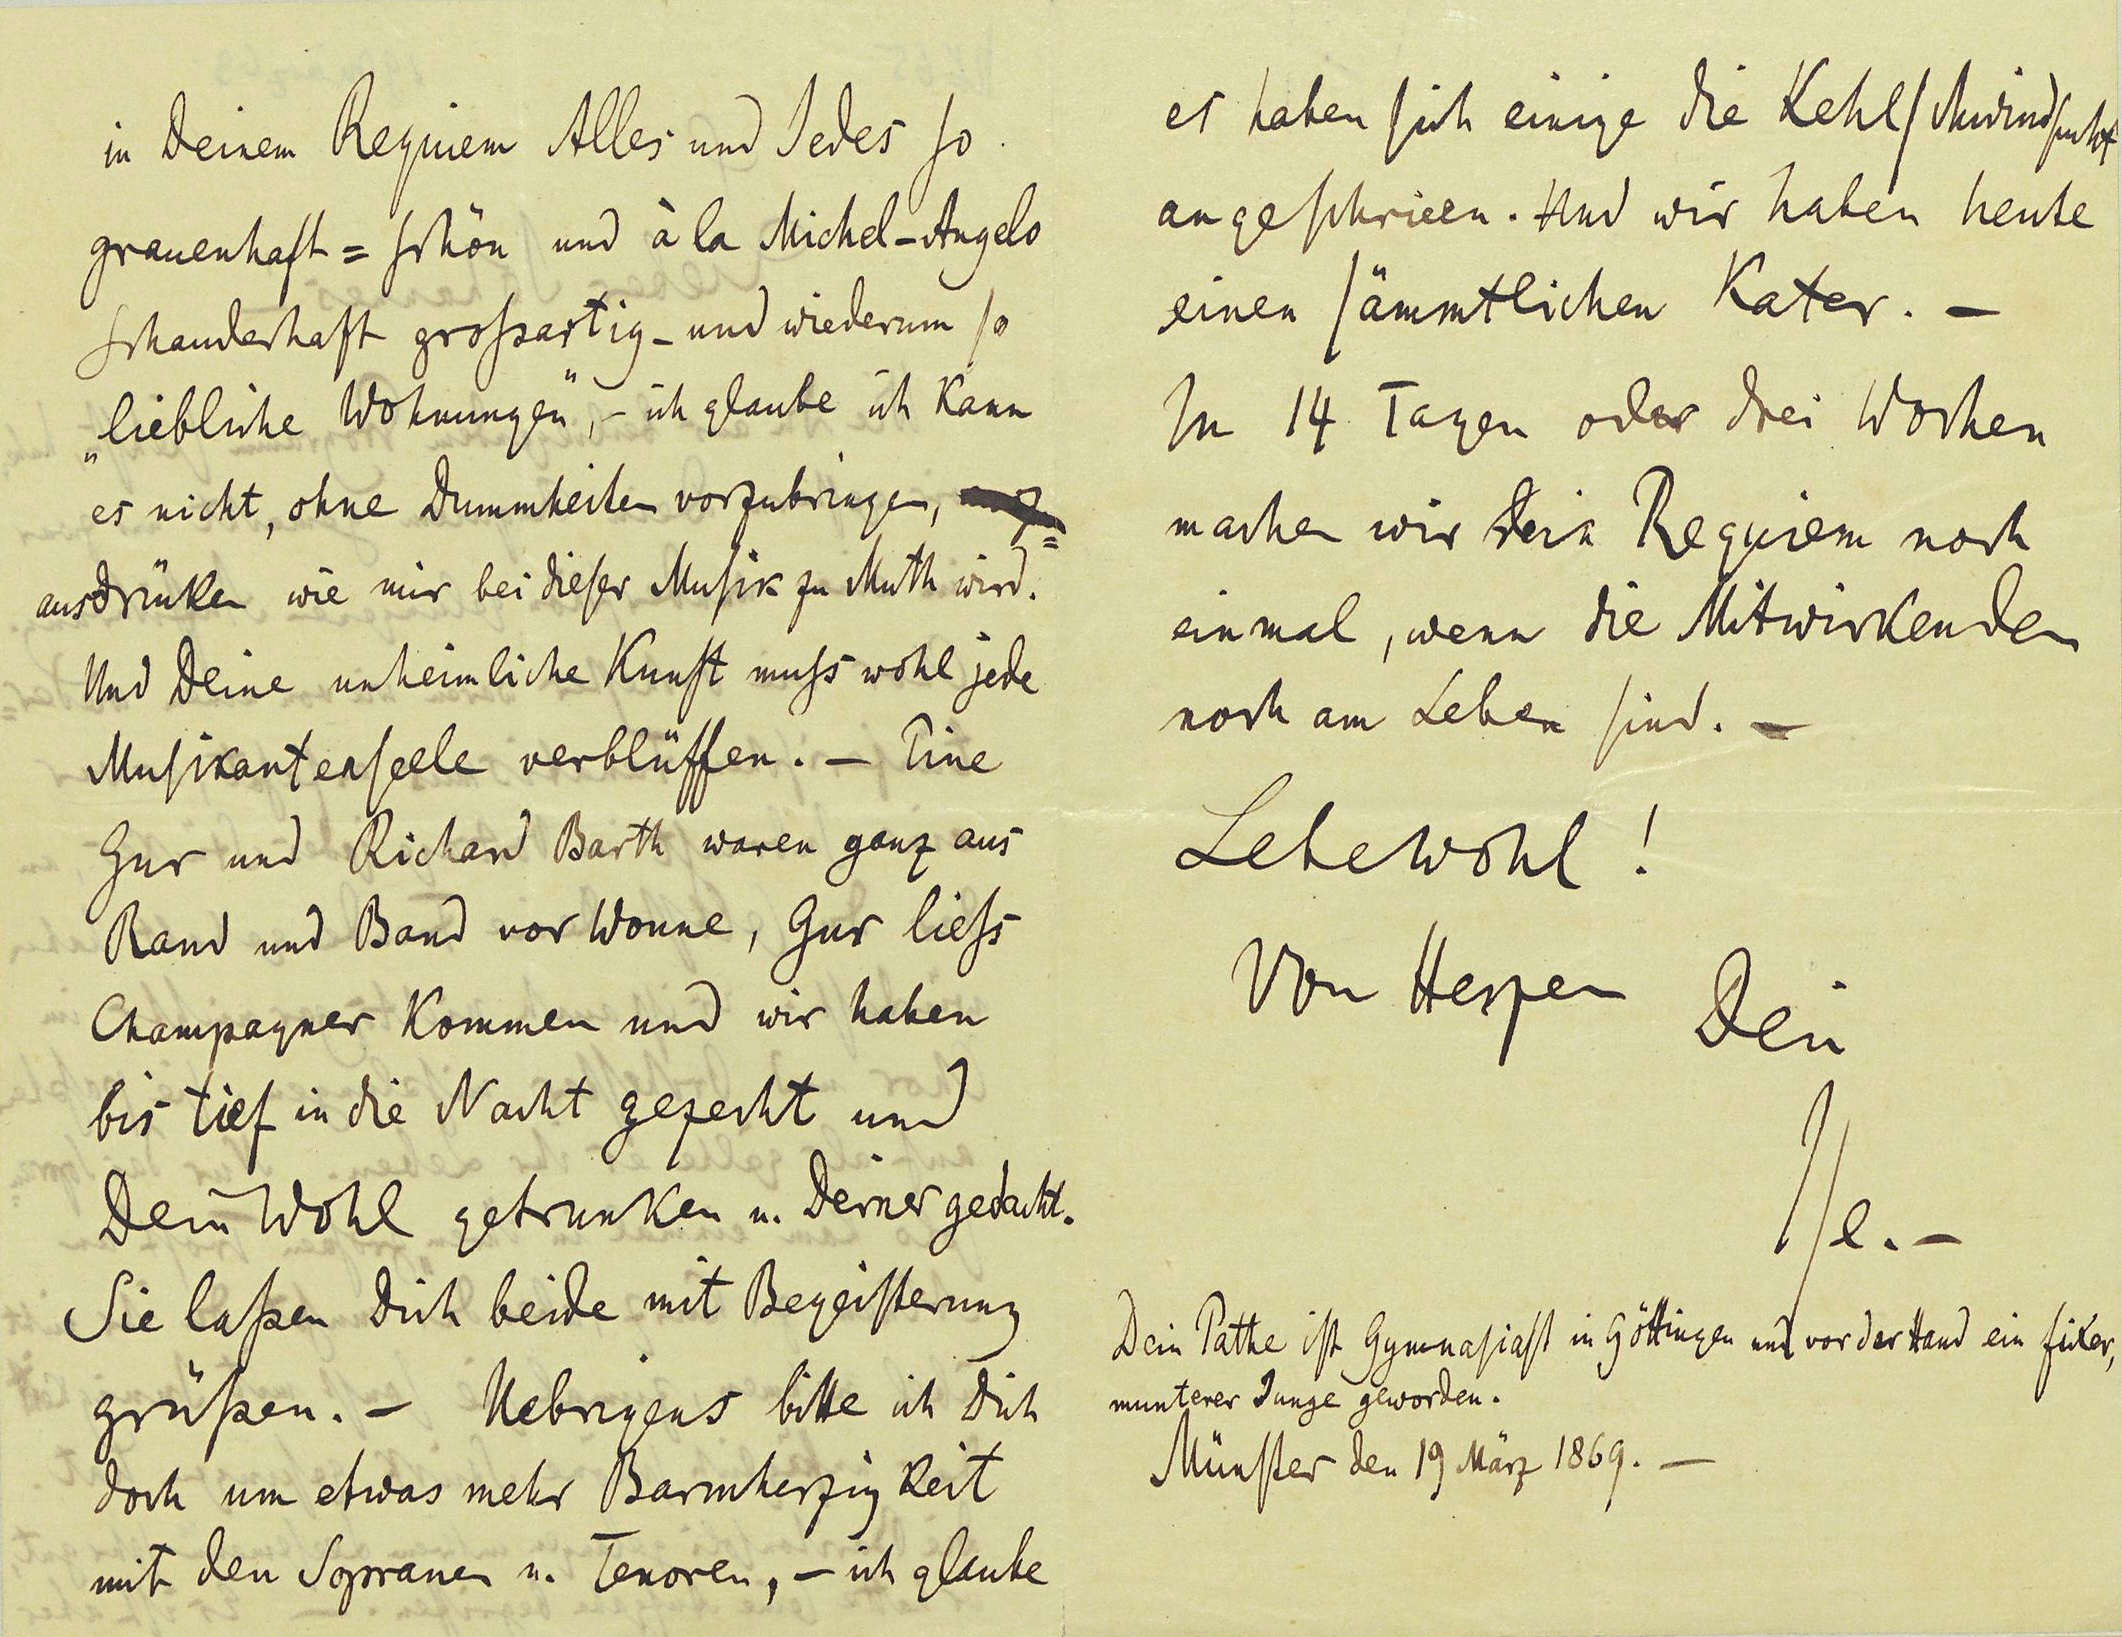 in Deinem Requiem Alles und Jedes so
grauenhaft=schön und à la Michel-Angelo
schauderhaft großartig – und wiederum so
„liebliche Wohnungen", – ich glaube ich kann
es nicht, ohne Dummheiten vorzubringen,
ausdrücken wie mir bei dieser Musik zu Muth wird.
Und Deine unheimliche Kunst muss wohl jede
Musikantenseele verblüffen. – Eine
Gur und Richard Barth waren ganz aus
Rand und Band vor Wonne, Gur liess
Champagner kommen und wir haben
bis tief in die Nacht gezecht und
Dein Wohl getrunken u. Deiner gedacht.
Sie laßen Dich beide mit Begeisterung
grüßen. – Uebrigens bitte ich Dich
doch um etwas mehr Barmherzigkeit
mit den Sopranen u. Tenoren, – ich glaube
es haben sich einige die Kehlschwindsucht
angeschrieen. Und wir haben heute
einen sämmtlichen Kater. –
In 14 Tagen oder drei Wochen
machen wir Dein Requiem noch
einmal, wenn die Mitwirkenden
noch am Leben sind. –
Lebewohl!
Von Herzen Dein
Ise. –
Dein Pathe ist Gymnasiast in Göttingen und vor der Hand ein fixer,
munterer Junge geworden.
Münster den 19 März 1869. –